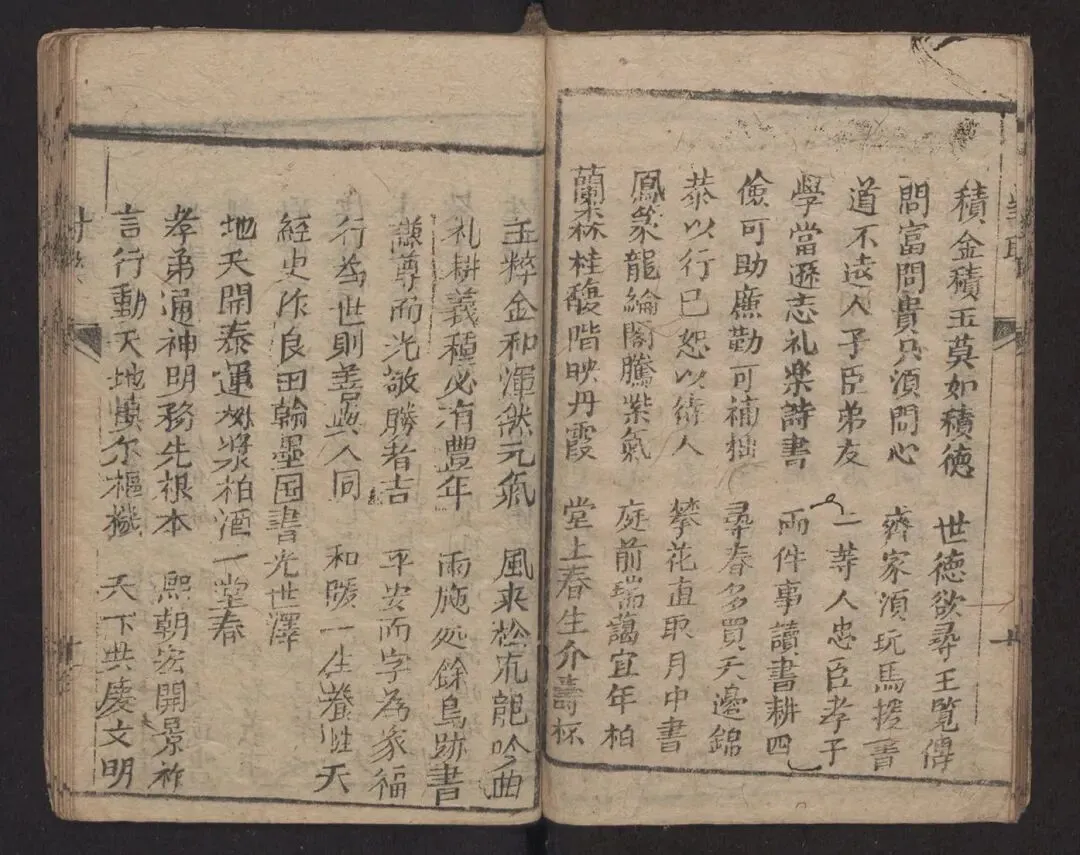 積金積玉莫如積德　世德欲尋王覽傳
問富問貴只須問心　齊家須玩馬援書
道不遠人子臣弟友　一等人忠臣孝子
學當遜志礼楽詩書　両件事讀書耕田
儉可助廉勤可補拙　尋春多買天邊錦
恭以行已恕以待人　攀花直取月中書
鳳篆龍綸閣騰紫氣　庭前瑞藹宜年柏
蘭森桂馥階映丹霞　堂上春生介壽杯
玉粹金和渾然元氣　風来松沇龍吟曲
礼耕義種必有豐年　雨施処餘鳥跡書
謙尊而光敬勝者吉　平安而字為家福
行為世則善與人同　和暖一生養性天
經史作良田翰墨圖書光世澤
地天開泰運椒漿柏酒一堂春
孝弟通神明務先根本　熙朝宏開景祚
言行動天地慎尔樞機　天下共慶文明
十